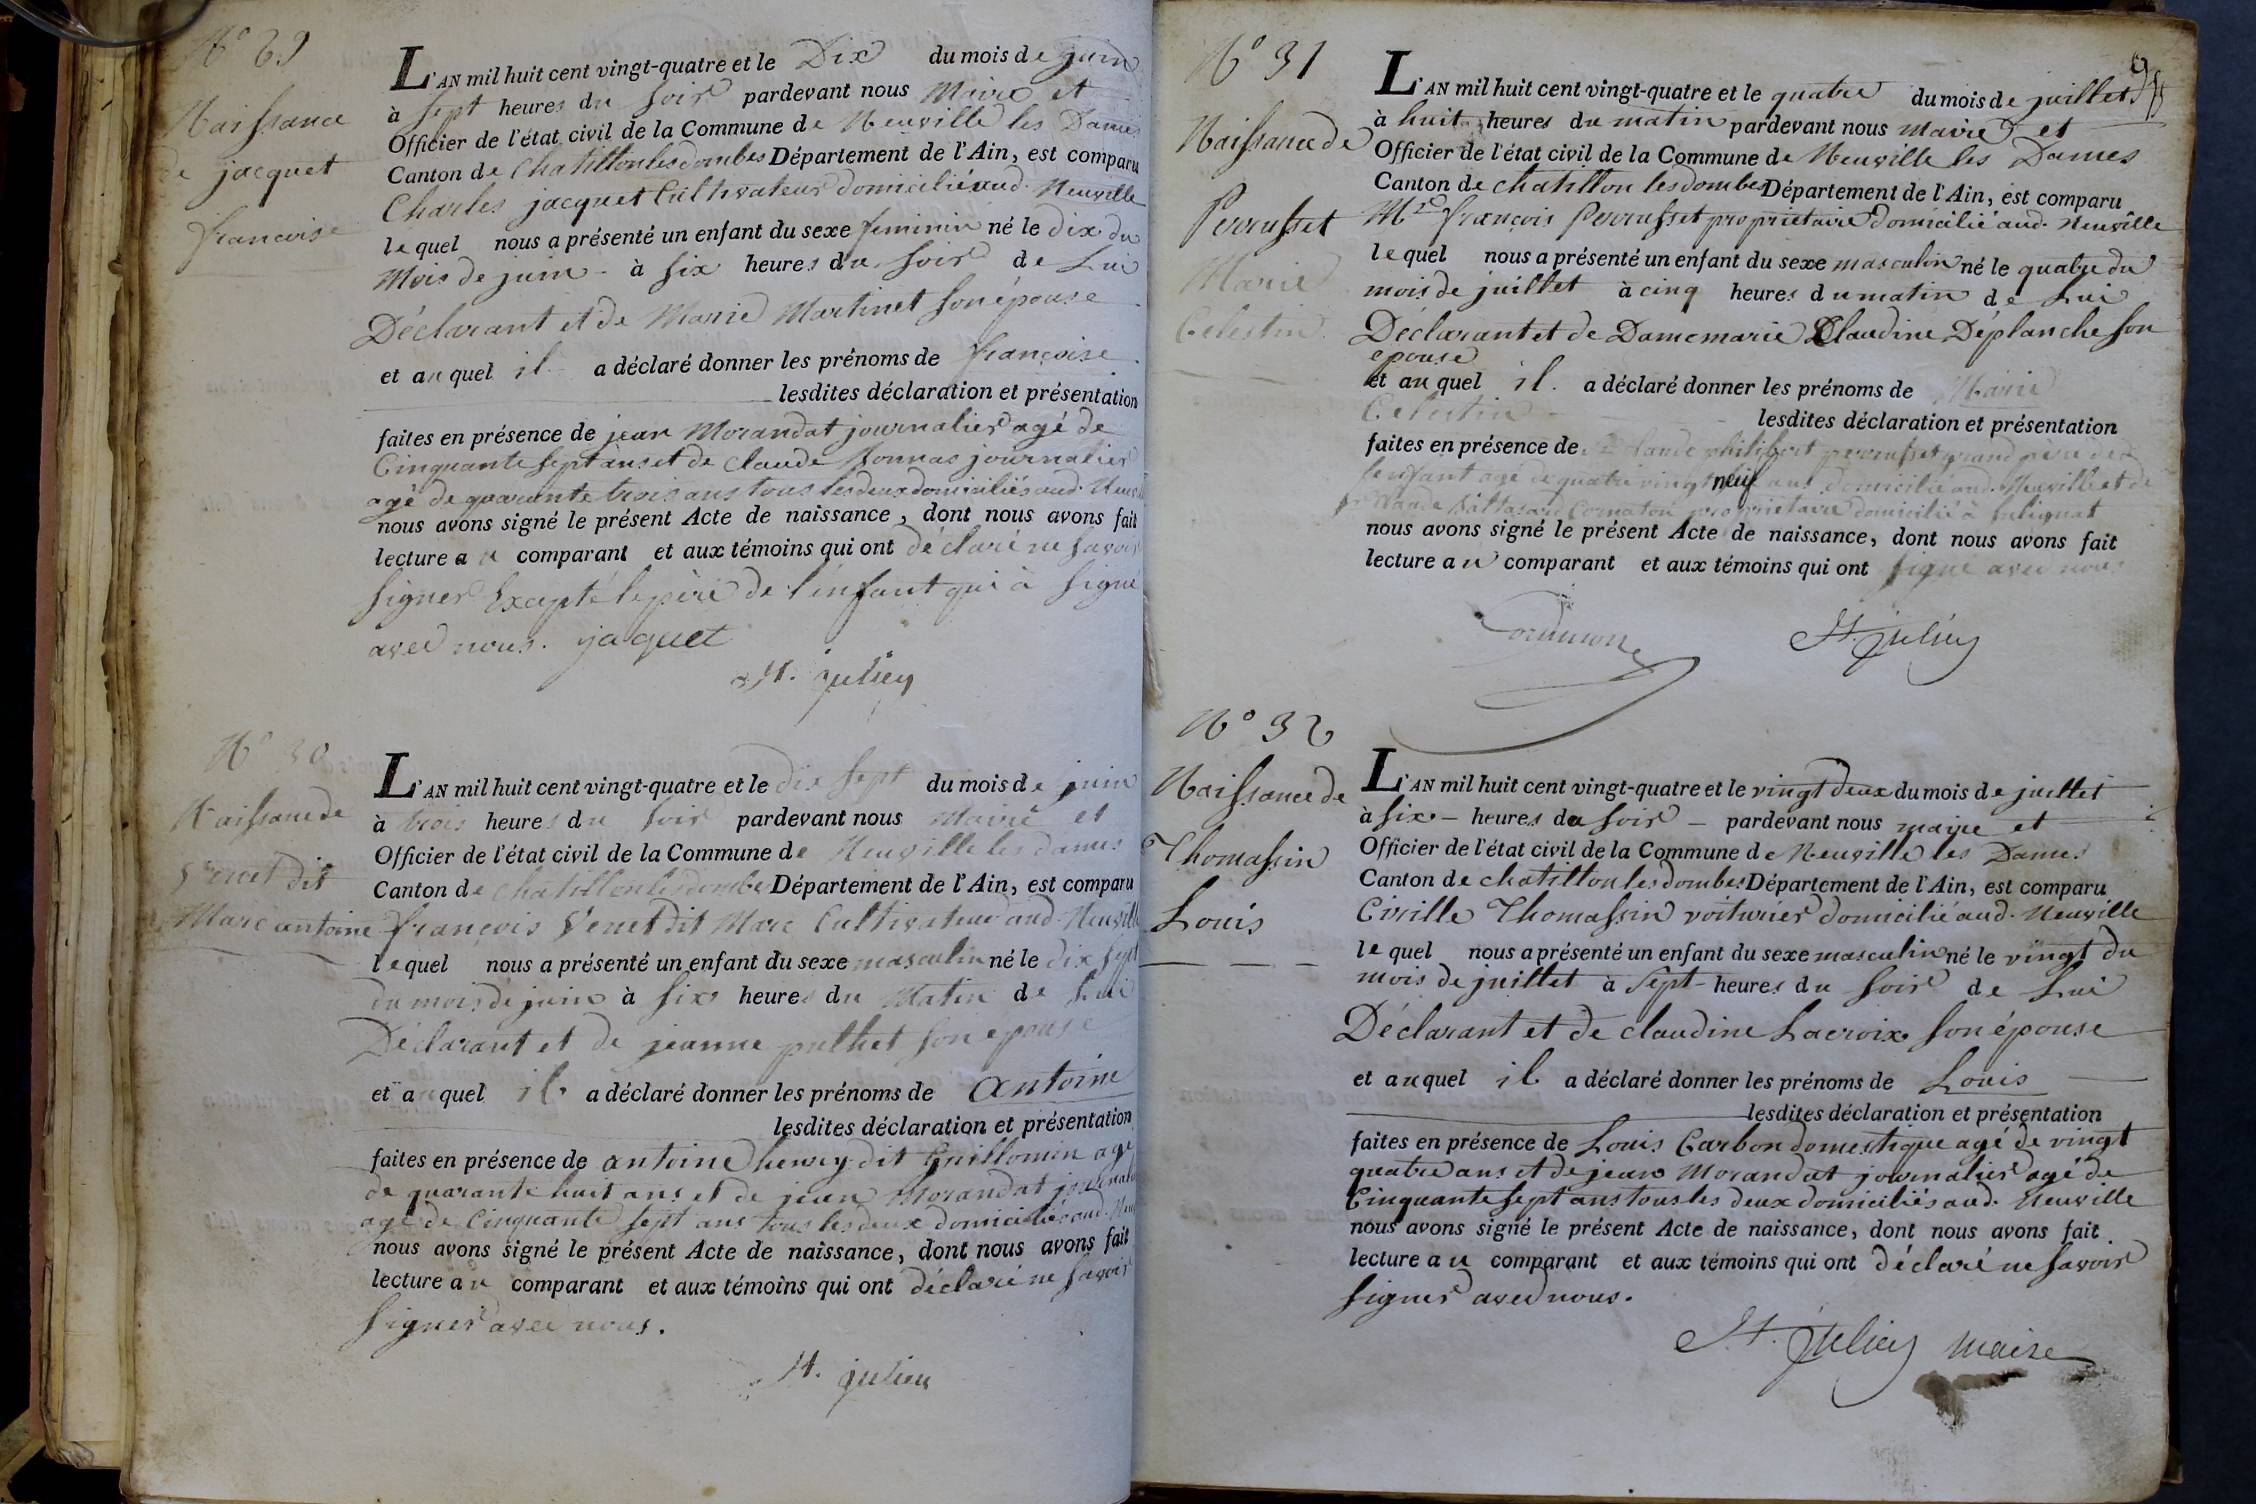 N° 29
Naissance
de jacquet
francoise
L'AN mil huit cent vingt-quatre et le Dix du mois de juin
à sept heures du soir pardevant nous Maire et
Officier de l'état civil de la Commune de Neuville les Dames
Canton de Chatillon les dombes Département de l'Ain, est comparu
Charles jacquet Cultivateur domicilié aud. Neuville
lequel nous a présenté un enfant du sexe feminin né le dix du
Mois de juin à six heures du soir de Lui
Déclarant et de Marie Martinet son épouse
et auquel il a déclaré donner les prénoms de françoise
lesdites déclaration et présentation
faites en présence de jean Morandat journalier agé de
Cinquante sept ans et de claude Monnas journalier
agé de quarante trois ans tous les deux domiciliés aud. Neuv
nous avons signé le présent Acte de naissance, dont nous avons fait
lecture au comparant et aux témoins qui ont déclaré ne savoir
signer Excepté le père de l'infant qui à signé
avec nous. jaquet
St. julien
N° 30
Naissance de
Venet dit
Marc antoine
L'AN mil huit cent vingt-quatre et le dix sept du mois de juin
à trois heures du soir pardevant nous Maire et
Officier de l'état civil de la Commune de Neuville les dames
Canton de Chatillon les dombes Département de l'Ain, est comparu
françois Venet dit Marc Cultivateur aud. Neuville
lequel nous a présenté un enfant du sexe masculin né le dix sept
du mois de juin à six heures du Matin de Lui
Déclarant et de jeanne pulhet son epouse
et auquel il a déclaré donner les prénoms de antoine
lesdites déclaration et présentation
faites en présence de antoine henry dit Guillomin agé
de quarante huit ans et de jean Morandat journalier
agé de Cinquante sept ans tous les deux domiciliés aud. Neuv
nous avons signé le présent Acte de naissance, dont nous avons fait
lecture au comparant et aux témoins qui ont déclaré ne savoir
signer avec nous.
St. julien
95
N° 31
Naissance de
Perrusset
Marie
Celestin
L'AN mil huit cent vingt-quatre et le quatre du mois de juillet
à huit heures du matin pardevant nous Maire et
Officier de l'état civil de la Commune de Neuville les Dames
Canton de chatillon les dombes Département de l'Ain, est comparu
Mr françois Perrusset proprietaire domicilié aud. Neuville
lequel nous a présenté un enfant du sexe masculin né le quatre du
mois de juillet à cinq heures du matin de Lui
Déclarant et de Dame marie Claudine Déplanche son
epouse
et auquel il a déclaré donner les prénoms de Marie
Celestin lesdites déclaration et présentation
faites en présence de Claude philibert perrusset grand père de
l'enfant agé de quatre vingt neuf ans domicilié aud. Neuville et de
Claude Baltazard Cornaton proprietaire domicilié à sulignat
nous avons signé le présent Acte de naissance, dont nous avons fait
lecture au comparant et aux témoins qui ont signé avec nous
St. julien
N° 32
Naissance de
Thomassin
Louis
L'AN mil huit cent vingt-quatre et le vingt deux du mois de juillet
à six heures du soir pardevant nous maire et
Officier de l'état civil de la Commune de Neuville les Dames
Canton de chatillon les dombes Département de l'Ain, est comparu
Cirille Thomassin voiturier domicilié aud. Neuville
lequel nous a présenté un enfant du sexe masculin né le vingt du
mois de juillet à sept heures du soir de Lui
Déclarant et de claudine Lacroix son épouse
et auquel il a déclaré donner les prénoms de Louis
lesdites déclaration et présentation
faites en présence de Louis Carbon domestique agé de vingt
quatre ans et de jean Morandat journalier agé de
Cinquante sept ans tous les deux domiciliés aud. Neuville
nous avons signé le présent Acte de naissance, dont nous avons fait
lecture au comparant et aux témoins qui ont déclaré ne savoir
signer avec nous.
St. julien maire